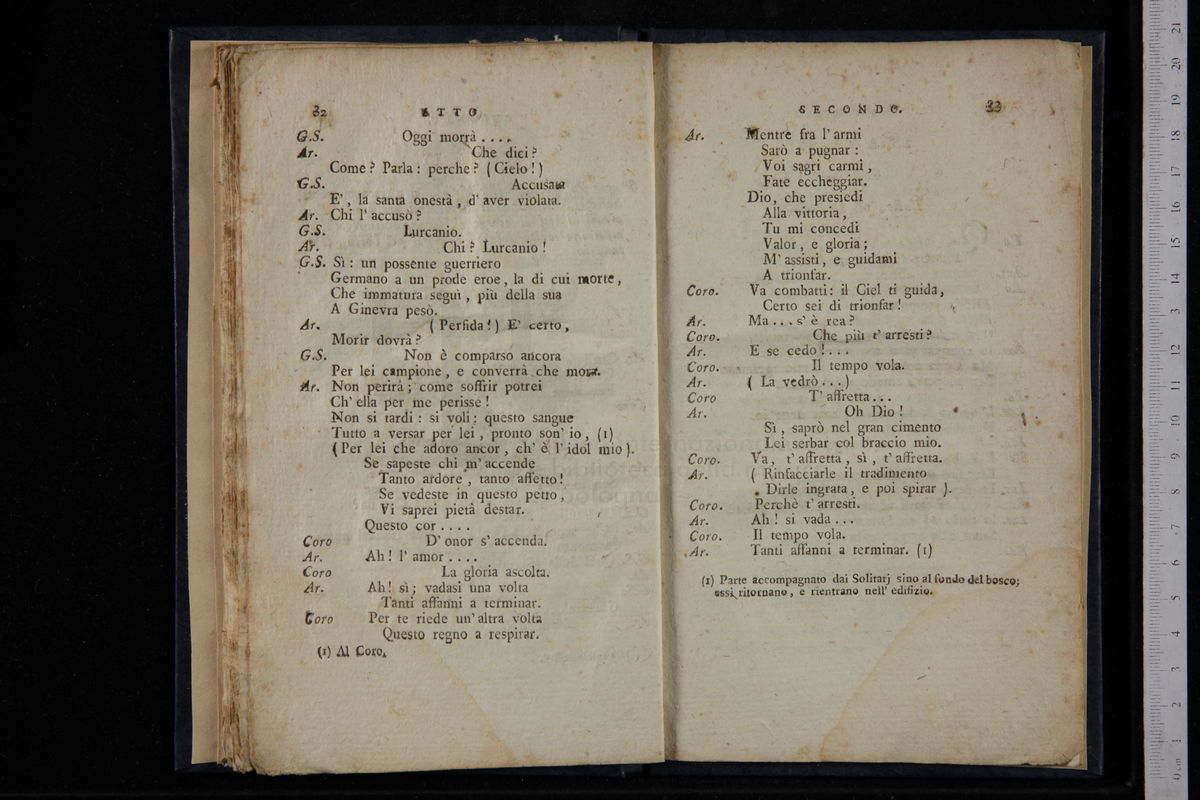 32 ATTO
G.S. Oggi morrà ....
Ar. Che dici?
Come? Parla: perche? (Cielo!)
G.S. Accusata
E', la santa onestà, d' aver violata.
Ar. Chi l' accusò?
G.S. Lurcanio.
Ar. Chi? Lurcanio!
G.S. Sì: un possente guerriero
Germano a un prode eroe, la di cui morte,
Che immatura seguì, più della sua
A Ginevra pesò.
Ar. (Perfida!) E' certo,
Morir dovrà?
G.S. Non è comparso ancora
Per lei campione, e converrà che mora.
Ar. Non perirà; come soffrir potrei
Ch' ella per me perisse!
Non si tardi: si voli: questo sangue
Tutto a versar per lei, pronto son' io, (1)
(Per lei che adoro ancor, ch' è l' idol mio).
Se sapeste chi m' accende
Tanto ardore, tanto affetto!
Se vedeste in questo petto,
Vi saprei pietà destar.
Questo cor ....
Coro D' onor s' accenda.
Ar. Ah! l' amor ....
Coro La gloria ascolta.
Ar. Ah! sì; vadasi una volta
Tanti affanni a terminar.
Coro Per te riede un' altra volta
Questo regno a respirar.
(1) Al Coro.
SECONDO. 33
Ar. Mentre fra l' armi
Sarò a pugnar:
Voi sagri carmi,
Fate eccheggiar.
Dio, che presiedi
Alla vittoria,
Tu mi concedi
Valor, e gloria;
M' assisti, e guidami
A trionfar.
Coro. Va combatti: il Ciel ti guida,
Certo sei di trionfar!
Ar. Ma... s' è rea?
Coro. Che più t' arresti?
Ar. E se cedo!...
Coro. Il tempo vola.
Ar. (La vedrò...)
Coro T' affretta...
Ar. Oh Dio!
Sì, saprò nel gran cimento
Lei serbar col braccio mio.
Coro. Va, t' affretta, sì, t' affretta.
Ar. (Rinfacciarle il tradimento
Dirle ingrata, e poi spirar).
Coro. Perchè t' arresti.
Ar. Ah! si vada...
Coro. Il tempo vola.
Ar. Tanti affanni a terminar. (1)
(1) Parte accompagnato dai Solitarj sino al fondo del bosco;
essi ritornano, e rientrano nell' edifizio.